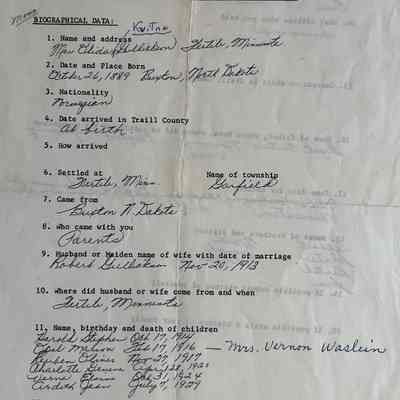 BIOGRAPHICAL DATA:
1. Name and address
Mrs. Gullekson Fertile, Minnesota
2. Date and Place Born
October 26, 1889 Buxton, North Dakota
3. Nationality
Norwegian
4. Date arrived in Traill County
At birth
5. How arrived
6. Settled at Name of township
Fertile, Minn. Garfield
7. Came from
Buxton N. Dakota
8. Who came with you
Parents
9. Husband or Maiden name of wife with date of marriage
Robert Gullekson Nov 20, 1913
10. Where did husband or wife come from and when
Fertile, Minnesota
11, Name, birthday and death of children
Harold Stephen Oct 17, 1914
Opal Feb 17, 1916 — Mrs. Vernon Waslien
Reuben Oliver Nov 27, 1917
Charlotte April
Verna Oct 31, 1924
Ardith Jean July 7, 1929